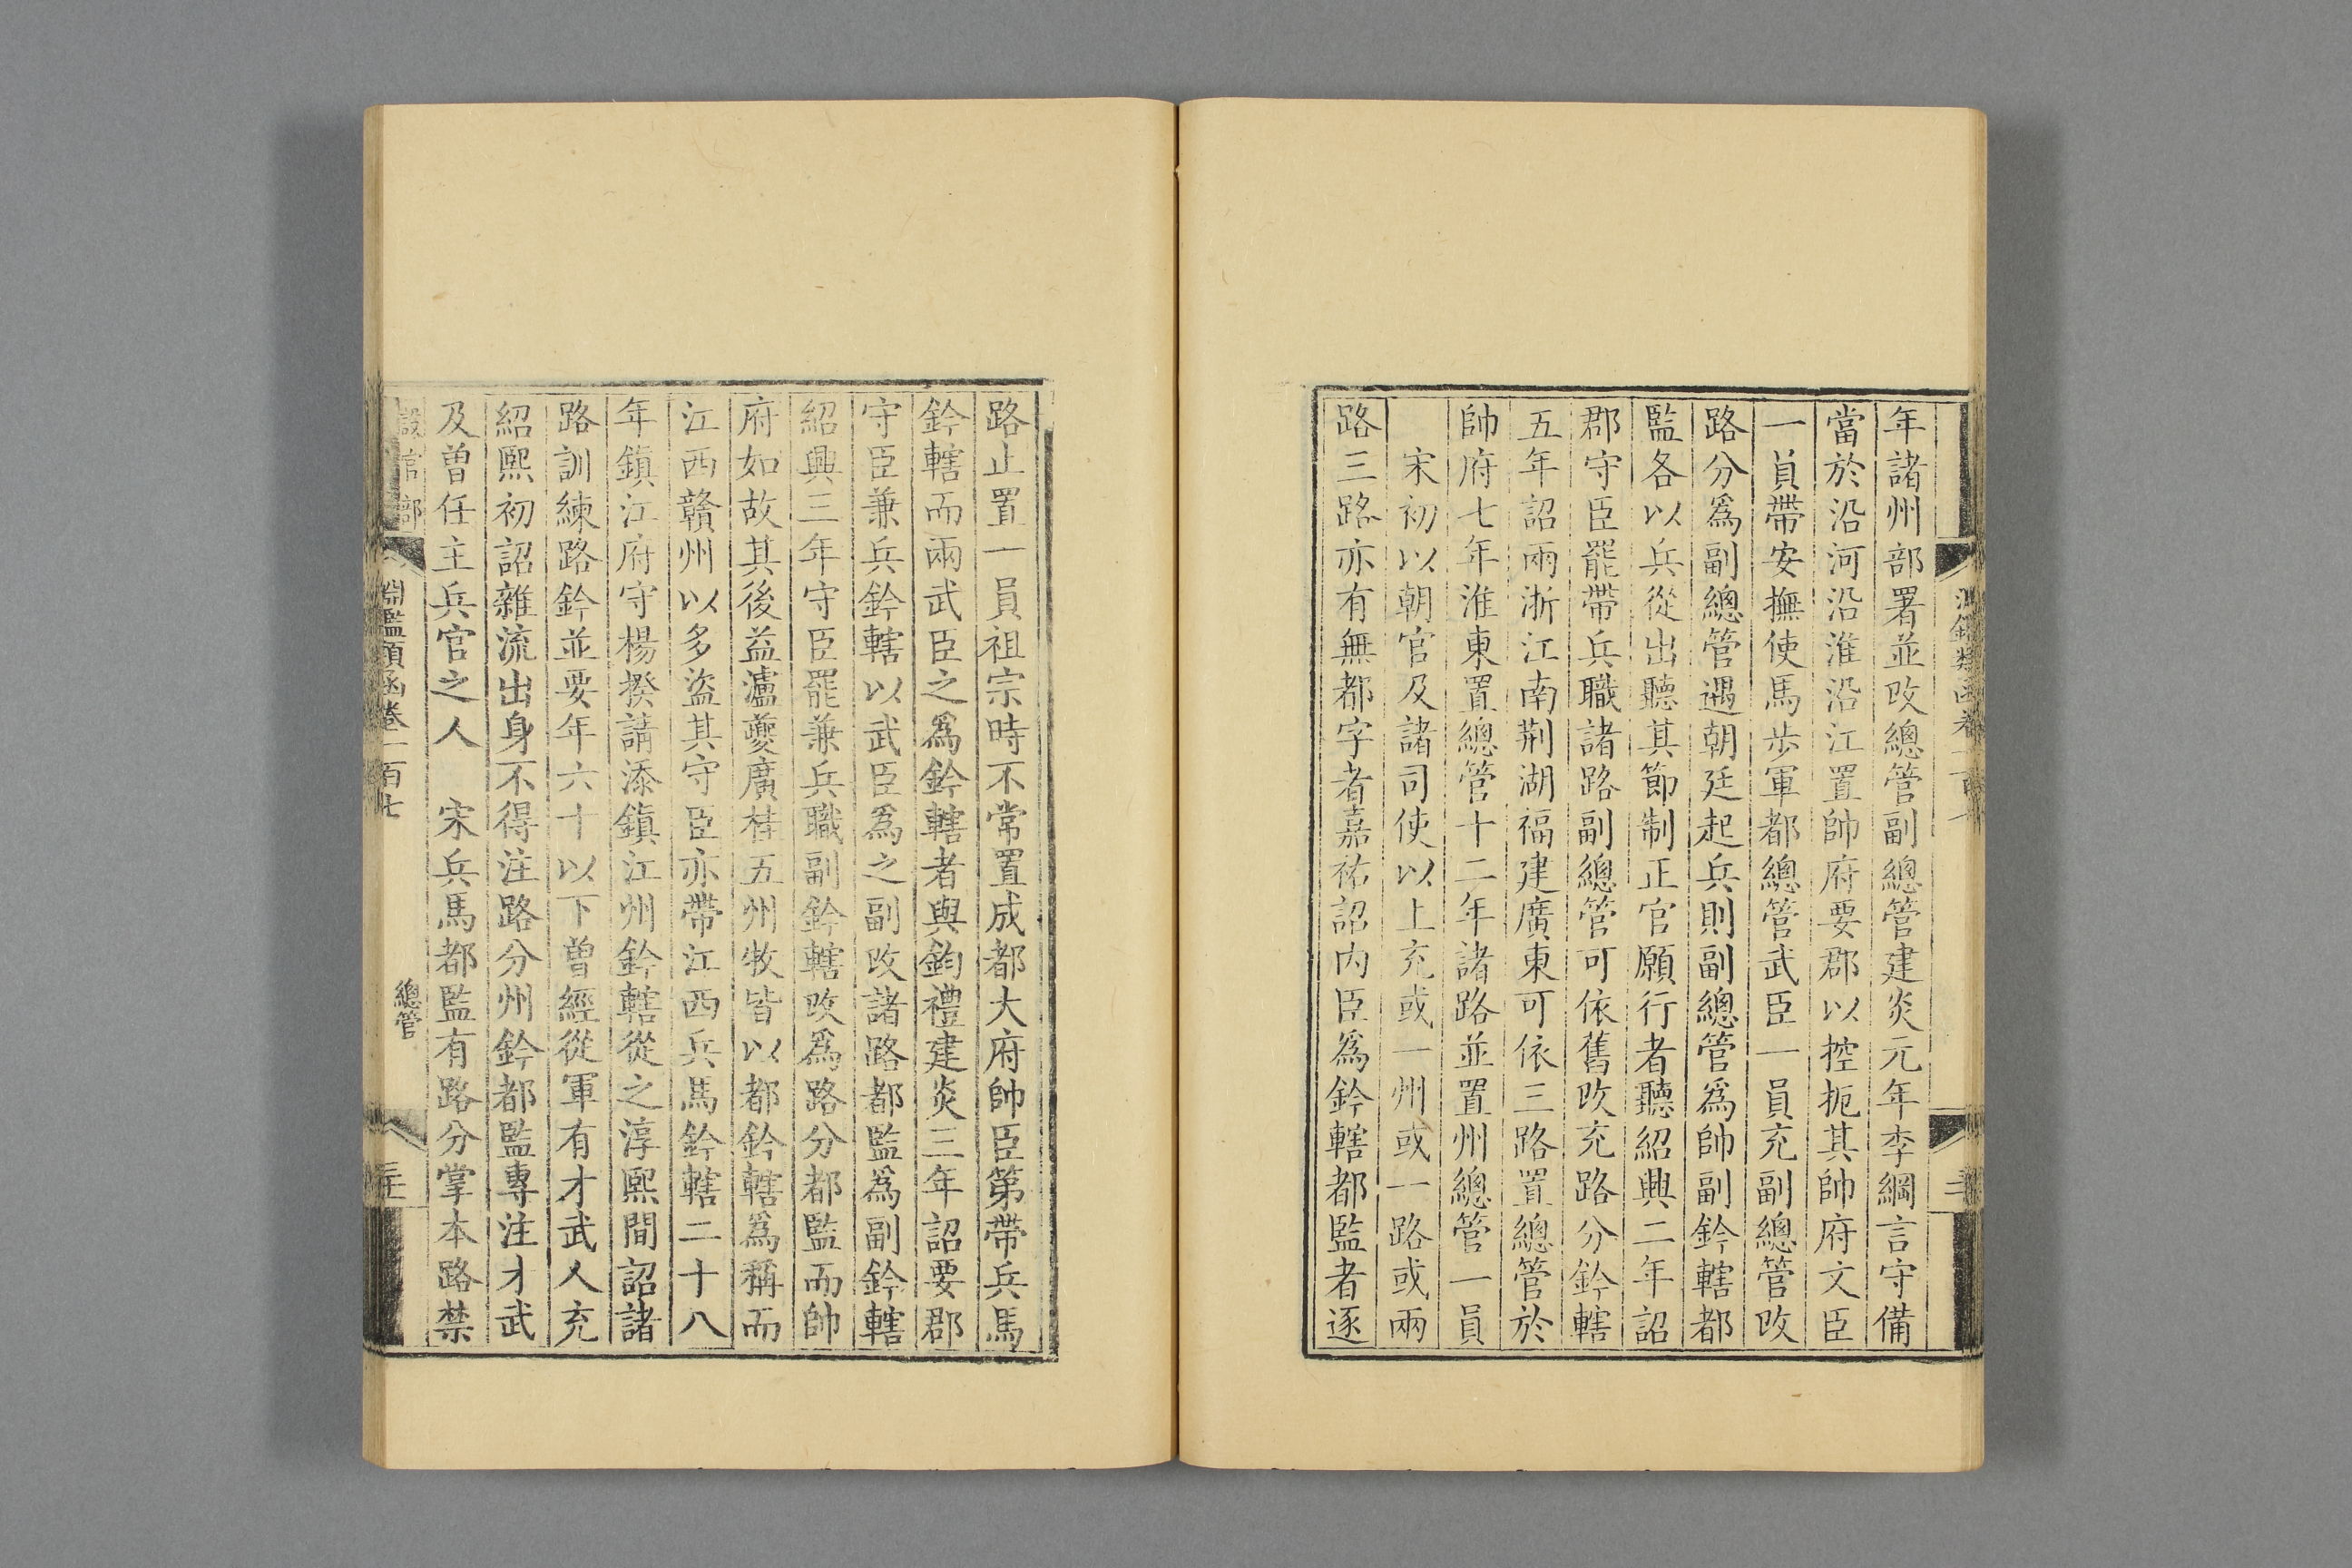 年諸州部署並改總管副總管建炎元年李綱言守備
當於沿河沿淮沿江置帥府要郡以控扼其帥府文臣
一員帶安撫使馬步軍都總管武臣一員充副總管改
路分爲副總管遇朝廷起兵則副總管爲帥副鈐轄都
監各以兵從出聽其節制正官願行者聽紹興二年詔
郡守臣罷帶兵職諸路副總管可依舊改充路分鈐轄
五年詔兩浙江南荆湖福建廣東可依三路置總管於
帥府七年淮東置總管十二年諸路並置州總管一員
宋初以朝官及諸司使以上充或一州或一路或兩
路三路亦有無都字者嘉祐詔内臣爲鈐轄都監者逐
路止置一員祖宗時不常置成都大府帥臣第帶兵馬
鈐轄而兩武臣之爲鈐轄者與鈞禮建炎三年詔要郡
守臣兼兵鈐轄以武臣爲之副改諸路都監爲副鈐轄
紹興三年守臣罷兼兵職副鈐轄改爲路分都監而帥
府如故其後益瀘夔廣桂五州牧皆以都鈐轄爲稱而
江西贛州以多盜其守臣亦帶江西兵馬鈐轄二十八
年鎮江府守楊揆請添鎮江州鈐轄從之淳熙間詔諸
路訓練路鈐並要年六十以下曾經從軍有才武人充
紹熙初詔雜流出身不得注路分州鈐都監專注才武
及曾任主兵官之人　宋兵馬都監有路分掌本路禁
設官部
淵鑑類函卷一百七
總管